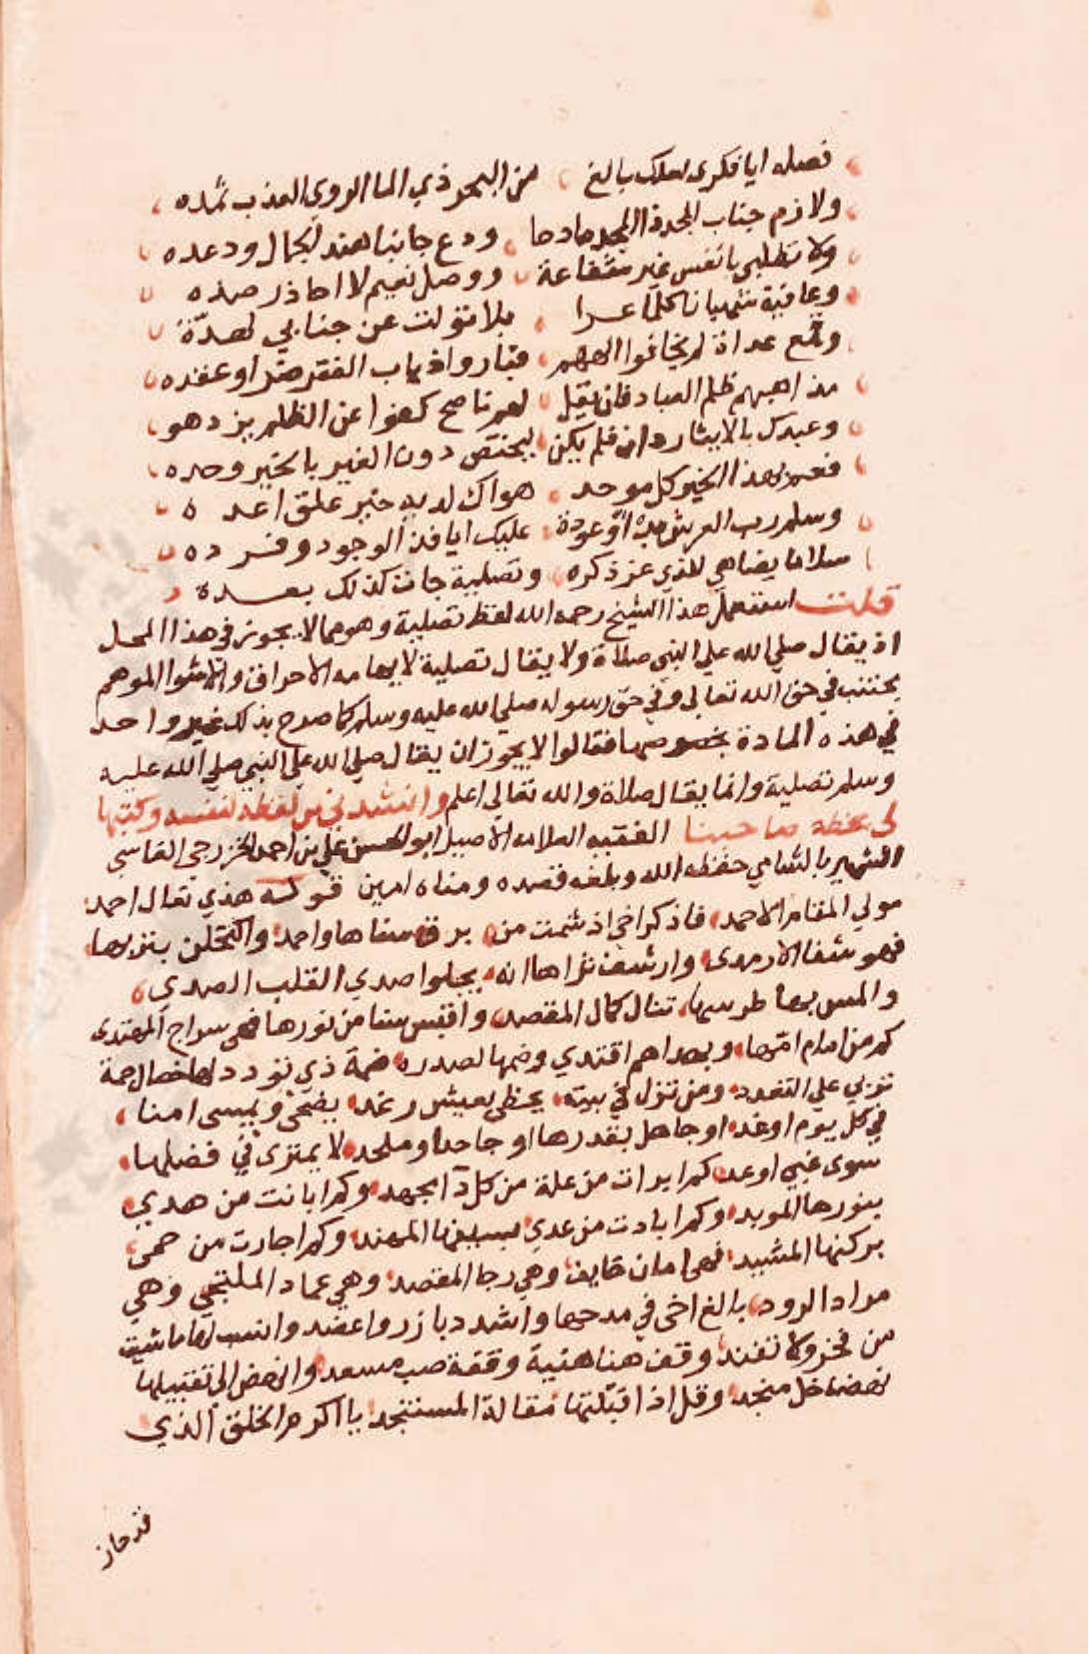 فصله ايا فكرى لعلك بالغ من البحر ذي الما الروي العذب ثمده
ولازم جناب المجد والمجد مادحا ودع جانبا هند الجمال ودعده
ولا تطلبي يا نفس غير شفاعة ووصل نعيم لا احاذر صده
وعافية تنتهيانا كلما عرا بلا متولت عن جنابي لصدّة
وقمع عداة لم يخافوا الههم اذهاب الفقر
مذاهبهم ظلم العباد فان يقل لهم ناصح كفوا عن الظلم يزدهو
وعبدك بالايثار دان فلم يكن ليختص دون الغير بالخير وحده
فعم بهذا الخير كل موحد هواك لديه خير علق اعده
وسلم رب العرش بدأ وعودة عليك ايا فذ الوجود وفرده
سلاما يضاهي للذي عز ذكره وتصلية جات كذلك بعده
قلت استعمل هذا الشيخ رحمه الله لفظ تصلية وهو مما لا يجوز في هذا المحل
اذ يقال صلي الله علي النبي صلاة ولا يقال تصلية لايهامه الاحراق والموهم
يجتنب في حق الله تعالي وفي حق رسوله صلي الله عليه وسلم كما صرح بذلك غير واحد
في هذه المادة بخصوصها فقالوا لا يجوز ان يقال صلي الله علي النبي صلي الله عليه
وسلم تصلية وانما يقال صلاة والله تعالي اعلم وانشدني من لفظه لنفسه وكتبها
لي بخطه صاحبنا الفقيه العلامه الاصيل ابو الحسن علي بن احمد الخزرجي الفاسي
الشهير بالشامي حفظه الله وبلغه قصده ومناه امين قوله هذي نعال احمد
مولي المقام الاحمد فاذكر اخي اذ شمت من برق سناها واحمد واكتحلن بتربها
فهو شفا الارمد وارشف ثراها انه يجلوا صدي القلب الصدي
والمس بها طرسها تنال كمال المقصد واقتبس سنا من نورها فهي سراج المهتدى
كم من امام امّها وبهداهم اقتدي وضمها لصدره ضمة ذي تودد لها خصال جمة
تربي علي التعدد ومن تنزل في بيته يحظى بعيش رغد يضحي ويمسى امنا
في كل يوم او غد او جاهل بقدرها او جاحد او ملحد لا يمترى في فضلها
سوى غبي اوعد كم ابرات من علة من كل دآ مجهد وكم ابانت من هدي
بنورها المويد وكم ابادت من عدي بسيفها المهند وكم اجارت من حمي
بركنها المشيد فهي امان خايف وهي رجا المقصد وهي عماد الملتجي وهي
مراد الرود بالغ اخي في مدحها واشدد بازر واعضد وانسب لها ما شيت
من فخر ولا تفند وقف هنا هنية وقفة صب مسعد وانهض الى تقبيلها
نهضة خل منجد وقل اذا قبلتها مقالة المستنجد يا اكرم الخلق الذي
قد حاز